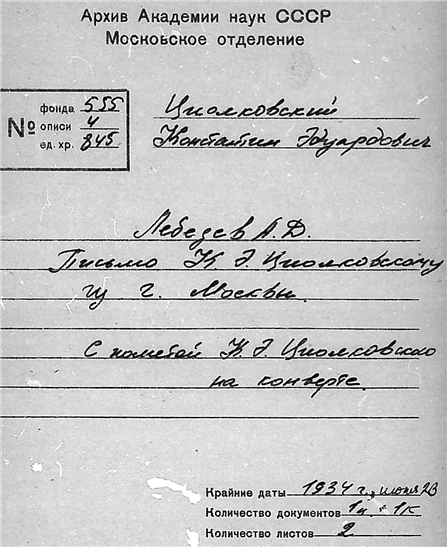 Архив Академии наук СССР
Московское отделение
№
фонда 555
описи 4
ед. хр. 845
Циолковский
Константин Эдуардович
Лебедев А.Д.
Письмо К. Э. Циолковскому
из г. Москвы.
С пометой К. Э. Циолковского
на конверте.
Крайние даты 1934 г., июня 23
Количество документов 1п. + 1к
Количество листов 2